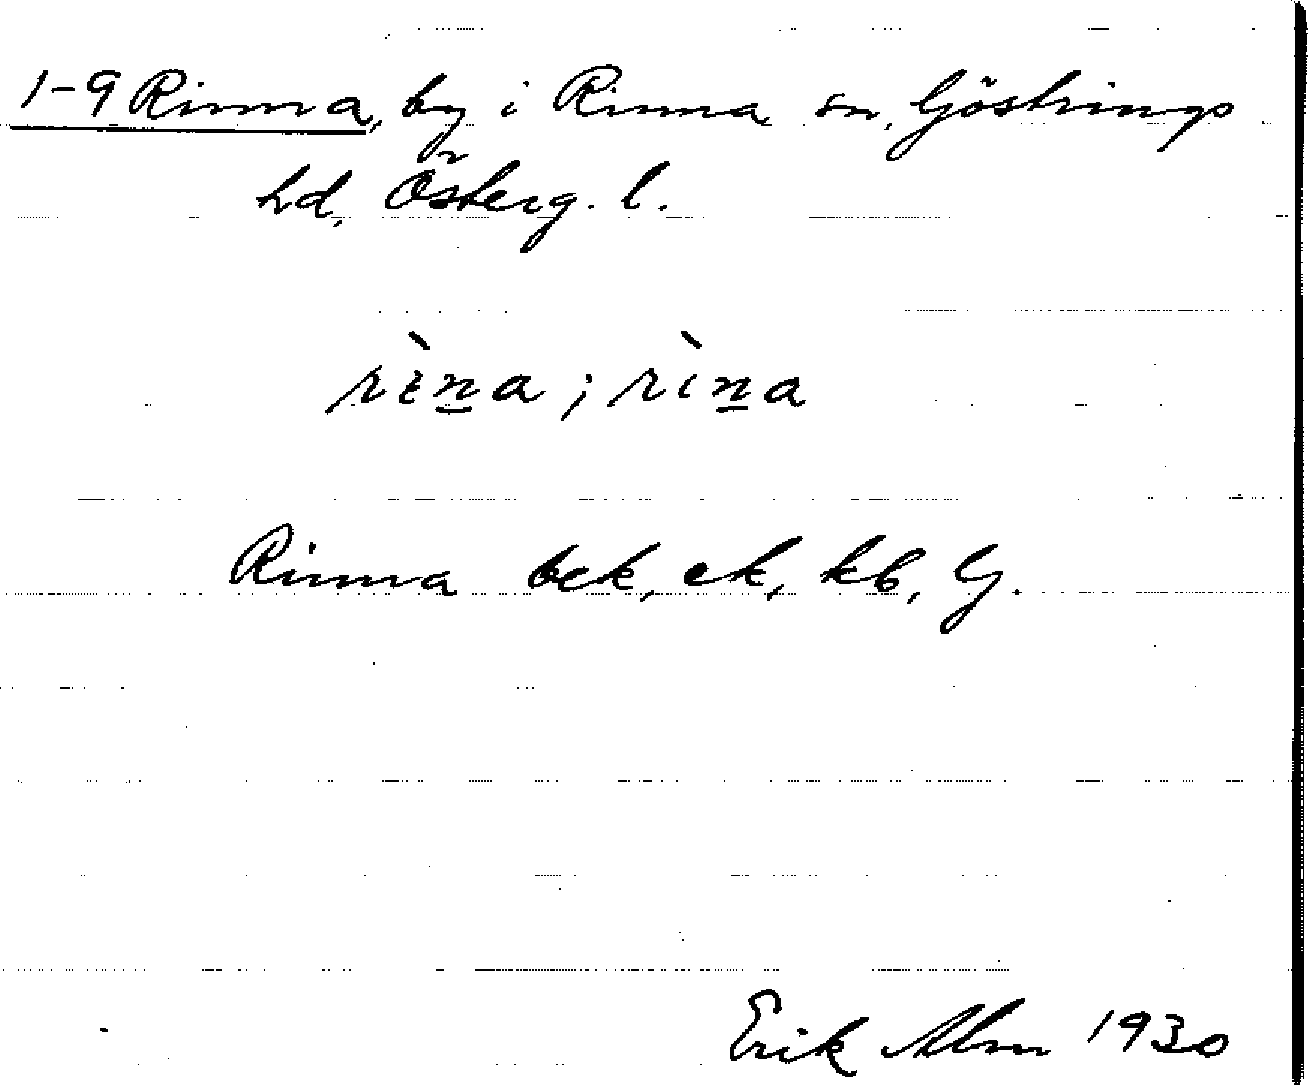 1-9 Rinna, by i Rinna sn, Göstrings
hd, Österg. l.
rὲn̲a; rìn̲a
Rinna bck, ek, kb, G.
Erik Alm 1930